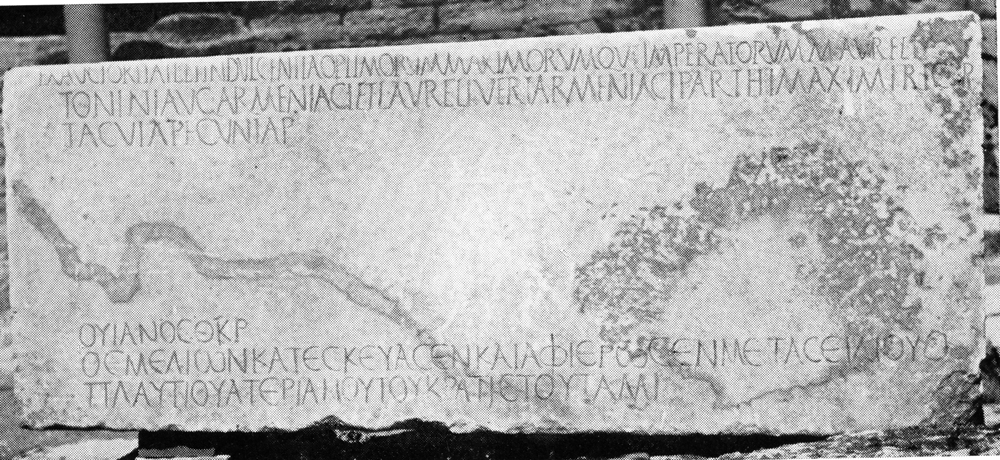 INDVLGENTIA OPTIMORVM MAXIMORVMQVE IMPERATORVM M AVRELI
TONINI AVG ARMENIACI ET L AVRELI VERI ARMENIACI PARTHI MAXIMI
TACVIA PECVNIA P
ΟΥΙΑΝΟϹ ΘΚΡ
ΘΕΜΕΛΙωΝ ΚΑΤΕϹΚΕΥΑϹΕΝ ΚΑΙ ΑΦΙΕΡωϹΕΝ ΜΕΤΑ ϹΕΙΔΙΟΥ
ΠΛΑΥΤΙΟΥ ΑΤΕΡΙΑΝΟΥ ΤΟΥ ΚΡΑΤΙϹΤΟΥ ΤΑΜΙ